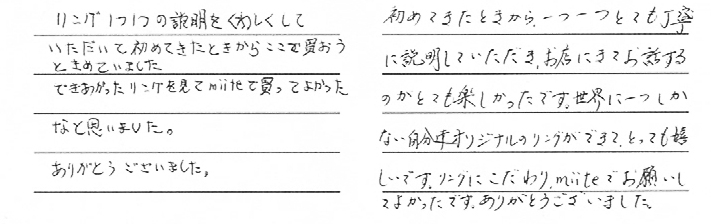 リング1つ1つの説明をくわしくして
いただいて初めてきたときからここで買おう
ときめていました
できあがったリングを見てmiiteで買ってよかった
なと思いました。
ありがとうございました。
初めてきたときから、一つ一つとても丁寧
に説明していただき、お店にきてお話する
のがとても楽しかったです。世界に一つしか
ない自分達オリジナルのリングができて、とっても嬉
しいです。リングにこだわり、miiteでお願いし
てよかったです。ありがとうございました。